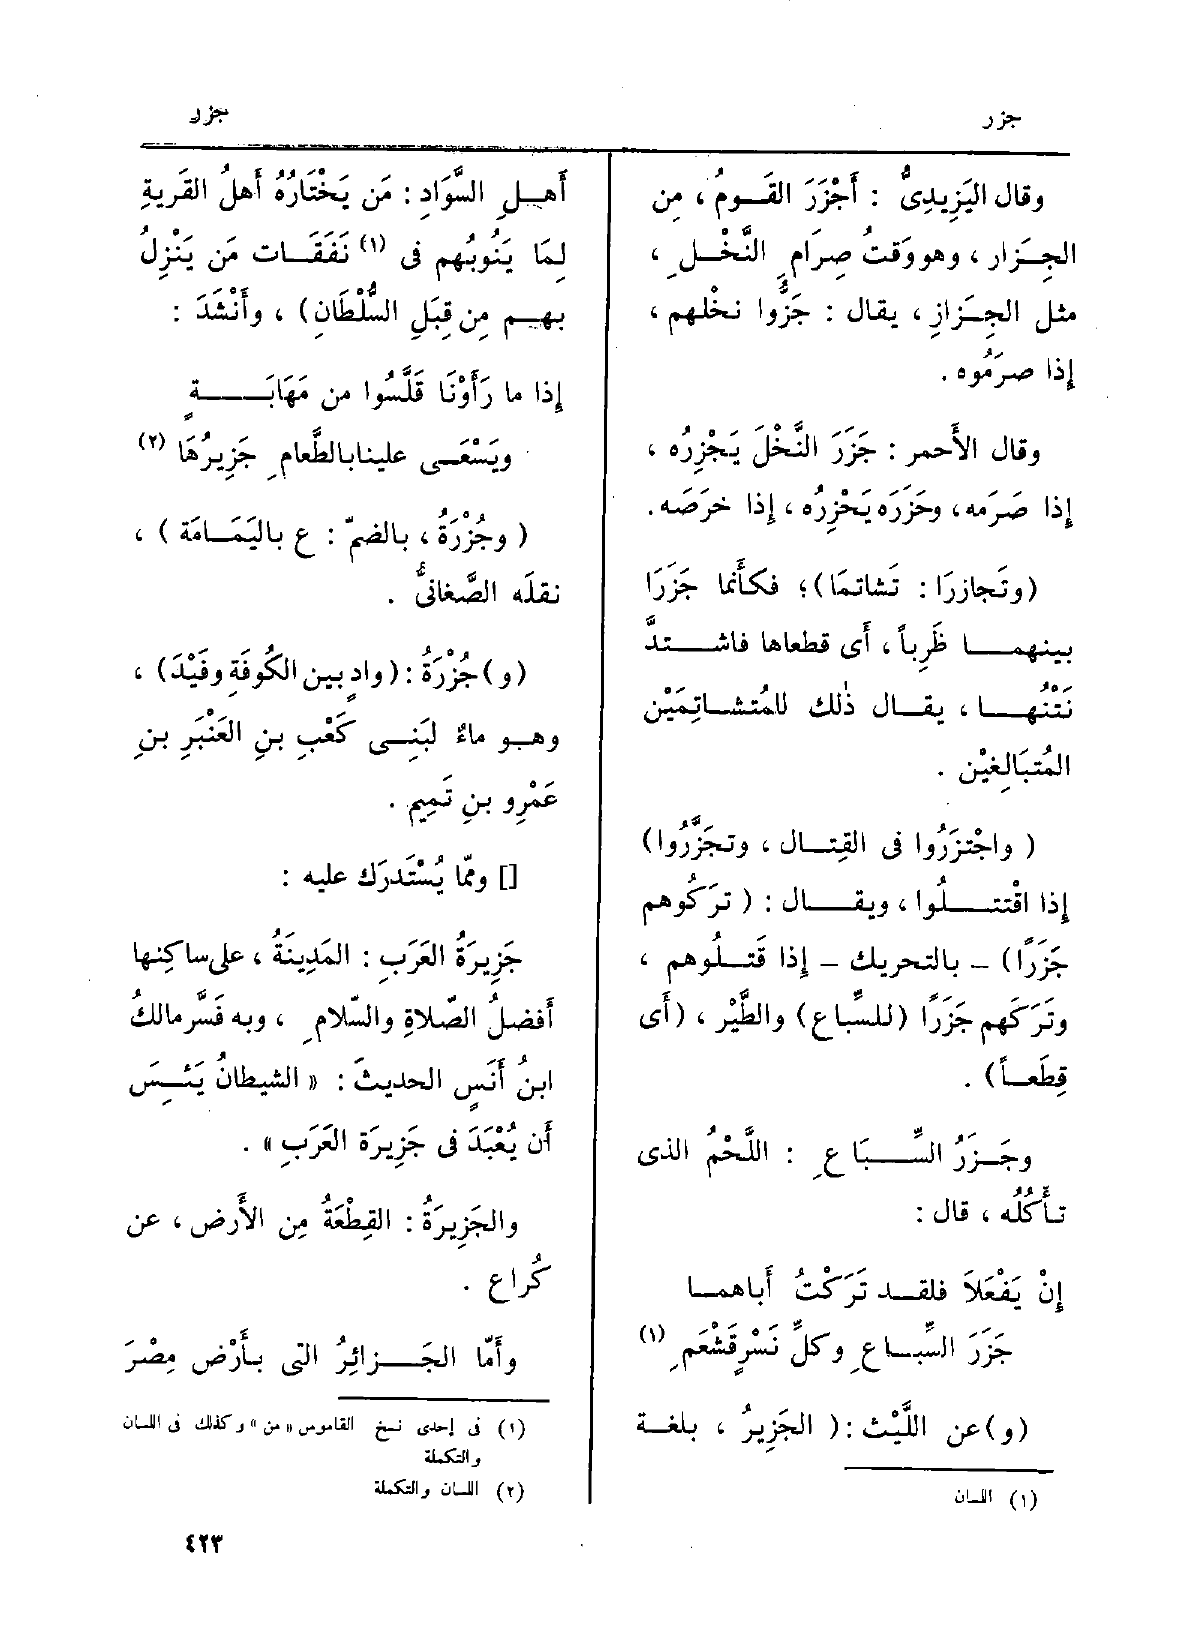 جزر
وقال اليَزِيدِىُّ : أَجْزَرَ القَـومُ ، مِن
الجِـزَار ، وهو وَقتُ صِرَامِ النَّخْـلِ ،
مثل الجِـزَازِ ، يقال : جَزُّوا نخلهم ،
إذا صرَمُوه .
وقال الأَحمر : جَزَرَ النَّخْلَ يَجْزِرُه ،
إذا صَرَمه ، وحَزَرَه يَحْزِرُه ، إذا خرَصَه .
(وتَجازرَا : تَشاتمَا) ؛ فكأَنَّما جَزَرَا
بينهمـا ظَرِباً ، أى قطعاها فاشـتدَّ
نَتْنُهـا ، يقـال ذٰلك للمُتشـاتِمَيْن
المُتبَالِغيْن .
( واجْتزَرُوا فى القِتـال ، وتجَزَّرُوا)
إذا اقْتتـلُوا ، ويقـال : ( ترَكُوهم
جَزَرًا) – بالتحريك – إذا قَتـلُوهم ،
وتَرَكَهم جَزَرًا (للسِّباع) والطَّيْر ، (أى
قِطَعـاً) .
وجَـزَرُ السِّـبَاعِ : اللَّحْمُ الذى
تـأْكُلُه ، قال :
إنْ يَفْعَلاَ فلقـد تَرَكْتُ أَباهمـا
جَزَرَ السِّبـاعِ وكلِّ نَسْرٍ قَشْعَمِ (١)
(و) عن اللَّيْث : ( الجَزِيرُ ، بلغـة
(١) اللسان
جزر
أَهـلِ السَّوَادِ : مَن يَخْتَارُهُ أَهلُ القَريةِ
لِمَا يَنُوبُهم فى (١) نَفَقَـات مَن يَنْزِلُ
بهـم مِن قِبَلِ السُّلْطَانِ) ، وأَنْشَدَ :
إذا ما رَأَوْنَا قَلَّسُوا من مَهَابَـةٍ
ويَسْعَـى علينا بالطَّعامِ جَزِيرُهَا (٢)
( وجُزْرَةُ ، بالضمّ : ع باليَمَـامَة ) ،
نقلَه الصَّغانىُّ .
(و) جُزْرَةُ : (وادٍ بين الكُوفَةِ وفَيْدَ) ،
وهـو ماءٌ لبَنِـى كَعْبِ بنِ العَنْبَرِ بنِ
عَمْرِو بنِ تَمِيم .
[] وممّا يُسْتَدرَك عليه :
جَزِيرَةُ العَرَبِ : المَدِينَةُ ، على ساكِنها
أَفضلُ الصّلاةِ والسّلامِ ، وبه فَسَّر مالكُ
ابنُ أَنَسٍ الحديثَ : « الشيطانُ يَئِـسَ
أَن يُعْبَدَ فى جَزِيرَة العَرَبِ » .
والجَزِيرَةُ : القِطْعَةُ مِن الأَرض ، عن
كُراع .
وأَمّا الجَـزائِرُ التى بـأَرْض مِصْرَ
(١) فى إحدى نسخ القاموس « من » وكذلك فى اللسان
والتكملة
(٢) اللسان والتكملة
٤٢٣